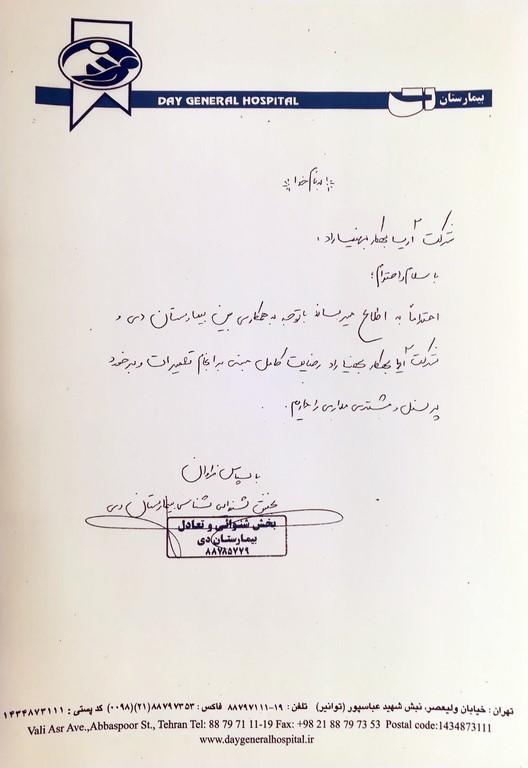 DAY GENERAL HOSPITAL
بیمارستان دی
بنام خدا
شرکت آریا بهکار بهنیا راد،
با سلام و احترام؛
احتراماً به اطلاع میرساند با توجه به همکاری بین بیمارستان دی و
شرکت آریا بهکار بهنیا راد رضایت کامل مبنی بر انجام تعمیرات و برخورد
پرسنل و مشتری مداری را داریم.
با سپاس فراوان
بخش شنوایی شناسی بیمارستان دی
بخش شنوائی و تعادل
بیمارستان دی
۸۸۷۸۵۷۷۹
تهران : خیابان ولیعصر، نبش شهید عباسپور (توانیر) تلفن : ۱۹-۸۸۷۹۷۱۱۱ فاکس : ۸۸۷۹۷۳۵۳(۲۱)(۰۰۹۸) کد پستی : ۱۴۳۴۸۷۳۱۱۱
Vali Asr Ave.,Abbaspoor St., Tehran Tel: 88 79 71 11-19 Fax: +98 21 88 79 73 53 Postal code:1434873111
www.daygeneralhospital.ir